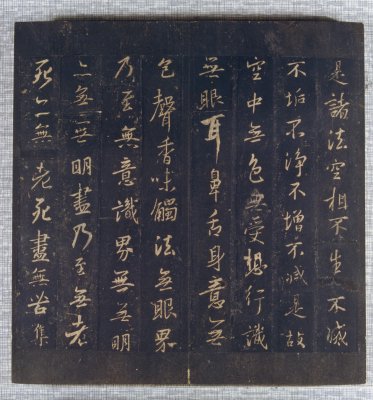 是諸法空相不生不滅
不垢不淨不增不減是故
空中无色無受想行識
無眼耳鼻舌身意无
色聲香味觸法无眼界
乃至無意識界無无明
亦無无明盡乃至無老
死亦無老死盡無苦集